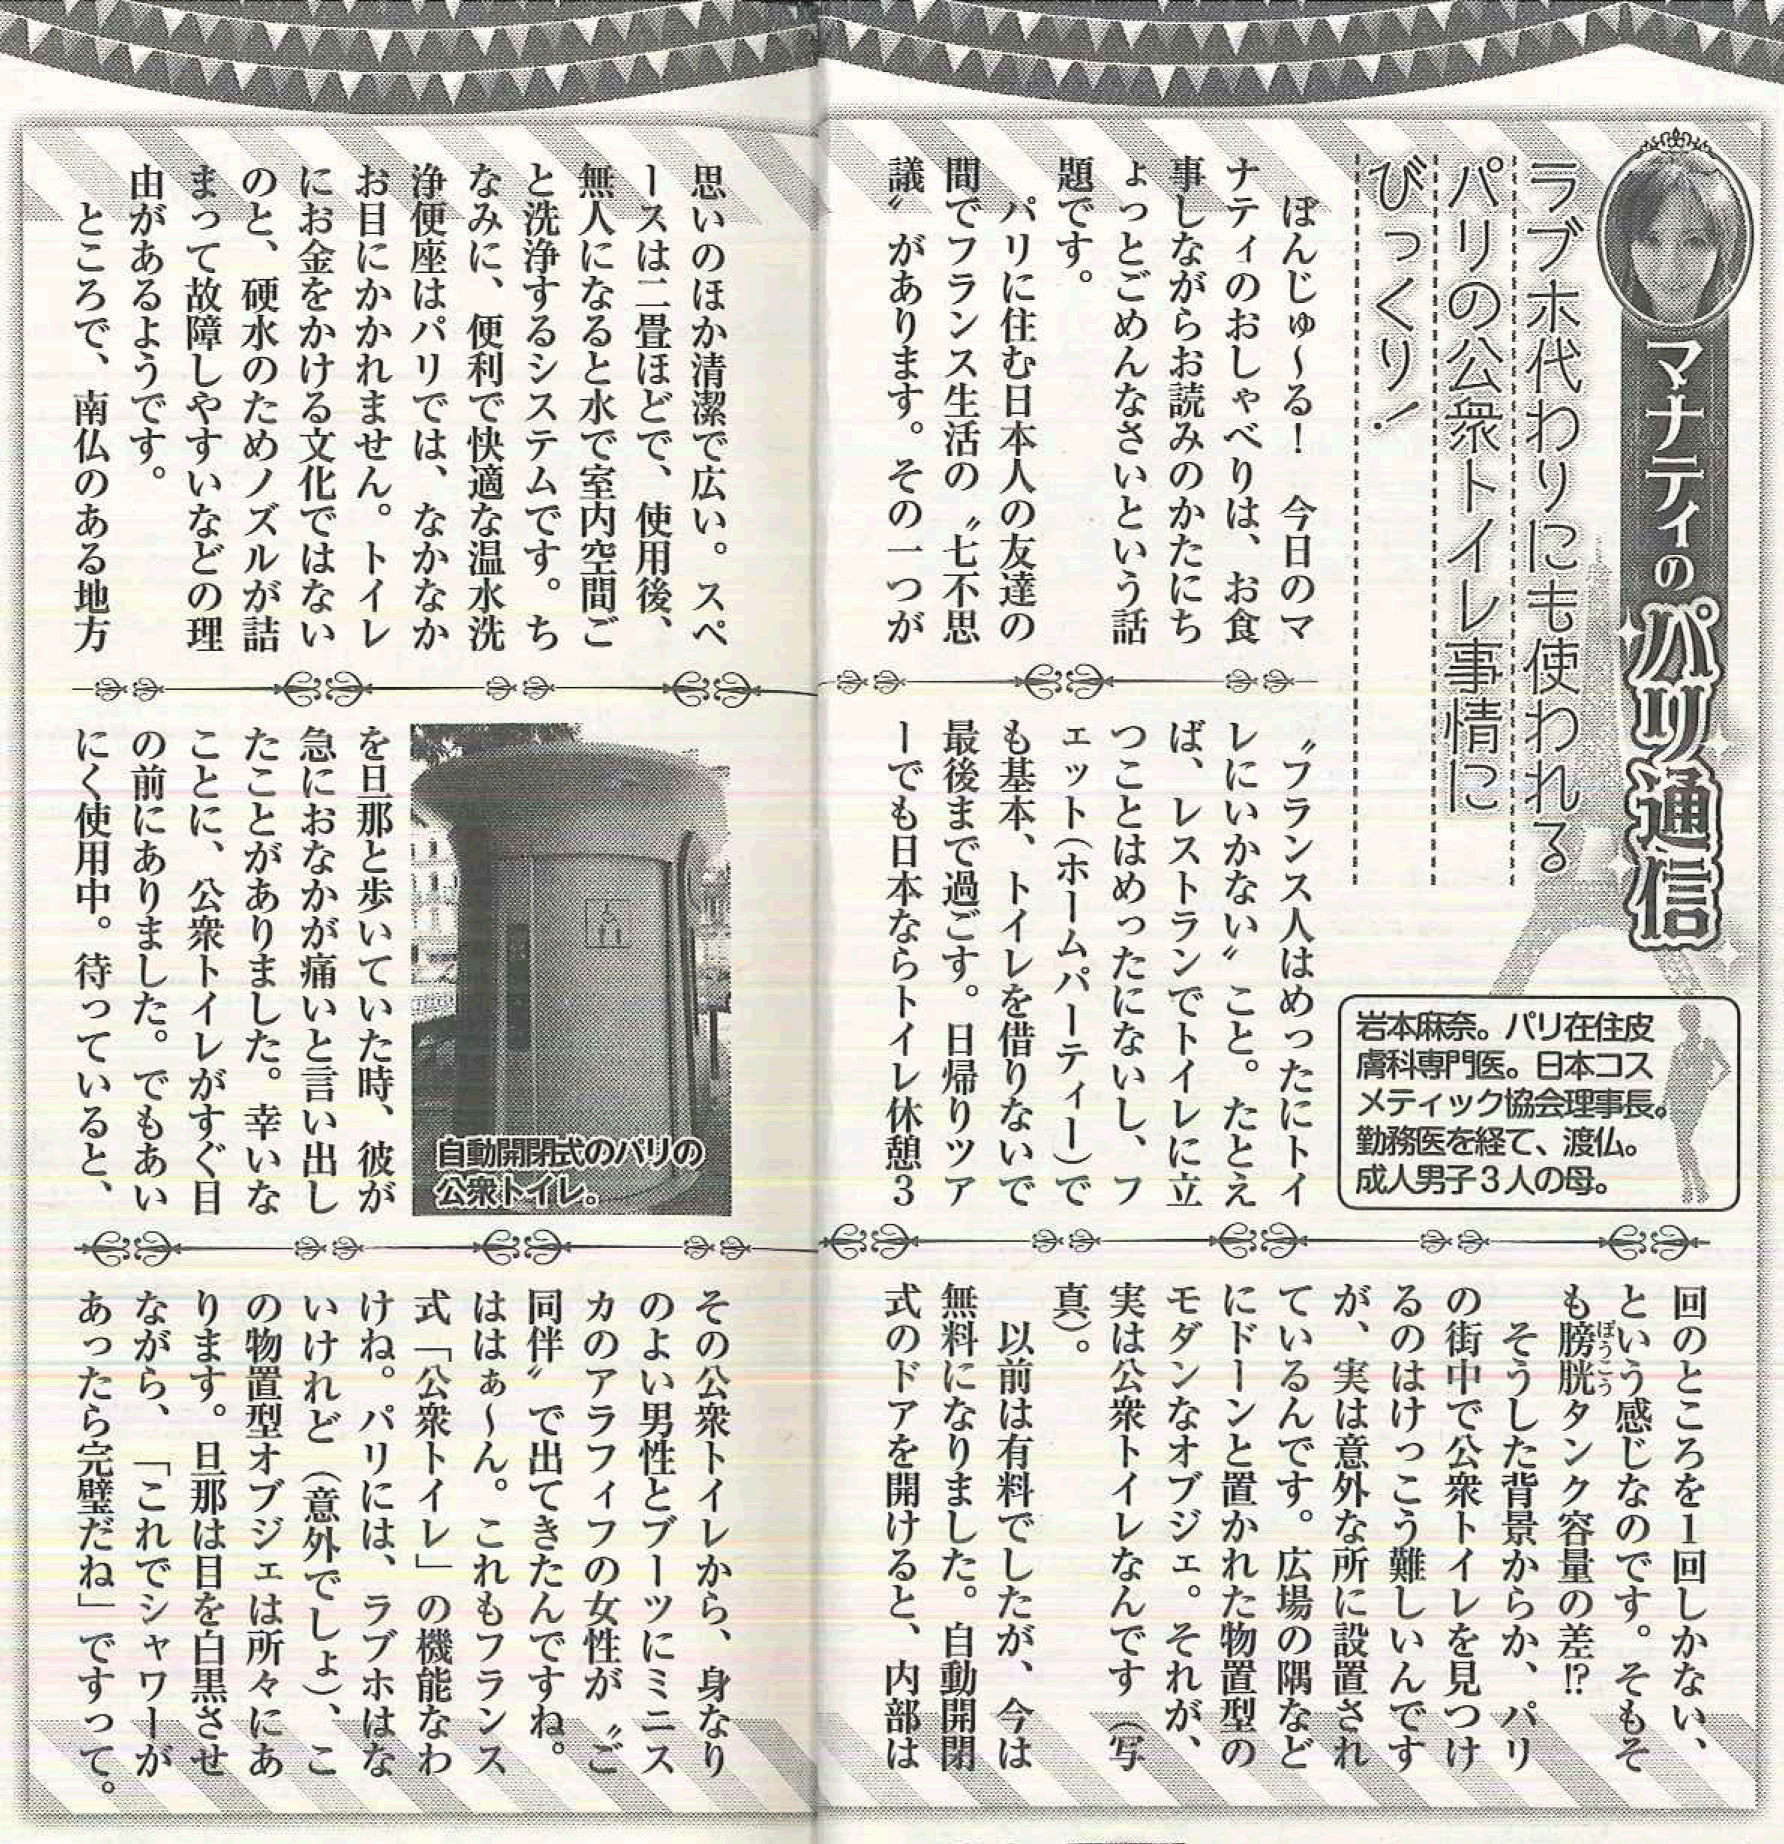 マナティのパリ通信
ラブホ代わりにも使われる
パリの公衆トイレ事情に
びっくり！
岩本麻奈。パリ在住皮
膚科専門医。日本コス
メティック協会理事長。
勤務医を経て、渡仏。
成人男子３人の母。
ぼんじゅ〜る！　今日のマ
ナティのおしゃべりは、お食
事しながらお読みのかたにち
ょっとごめんなさいという話
題です。
パリに住む日本人の友達の
間でフランス生活の〝七不思
議〟があります。その一つが
〝フランス人はめったにトイ
レにいかない〟こと。たとえ
ば、レストランでトイレに立
つことはめったにないし、フ
ェット（ホームパーティー）で
も基本、トイレを借りないで
最後まで過ごす。日帰りツア
ーでも日本ならトイレ休憩３
回のところを１回しかない、
という感じなのです。そもそ
も膀胱タンク容量の差!?
ぼうこう
そうした背景からか、パリ
の街中で公衆トイレを見つけ
るのはけっこう難しいんです
が、実は意外な所に設置され
ているんです。広場の隅など
にドーンと置かれた物置型の
モダンなオブジェ。それが、
実は公衆トイレなんです（写
真）。
以前は有料でしたが、今は
無料になりました。自動開閉
式のドアを開けると、内部は
思いのほか清潔で広い。スペ
ースは二畳ほどで、使用後、
無人になると水で室内空間ご
と洗浄するシステムです。ち
なみに、便利で快適な温水洗
浄便座はパリでは、なかなか
お目にかかれません。トイレ
にお金をかける文化ではない
のと、硬水のためノズルが詰
まって故障しやすいなどの理
由があるようです。
ところで、南仏のある地方
自動開閉式のパリの
公衆トイレ。
を旦那と歩いていた時、彼が
急におなかが痛いと言い出し
たことがありました。幸いな
ことに、公衆トイレがすぐ目
の前にありました。でもあい
にく使用中。待っていると、
その公衆トイレから、身なり
のよい男性とブーツにミニス
カのアラフィフの女性が〝ご
同伴〟で出てきたんですね。
ははぁ〜ん。これもフランス
式「公衆トイレ」の機能なわ
けね。パリには、ラブホはな
いけれど（意外でしょ）、こ
の物置型オブジェは所々にあ
ります。旦那は目を白黒させ
ながら、「これでシャワーが
あったら完璧だね」ですって。